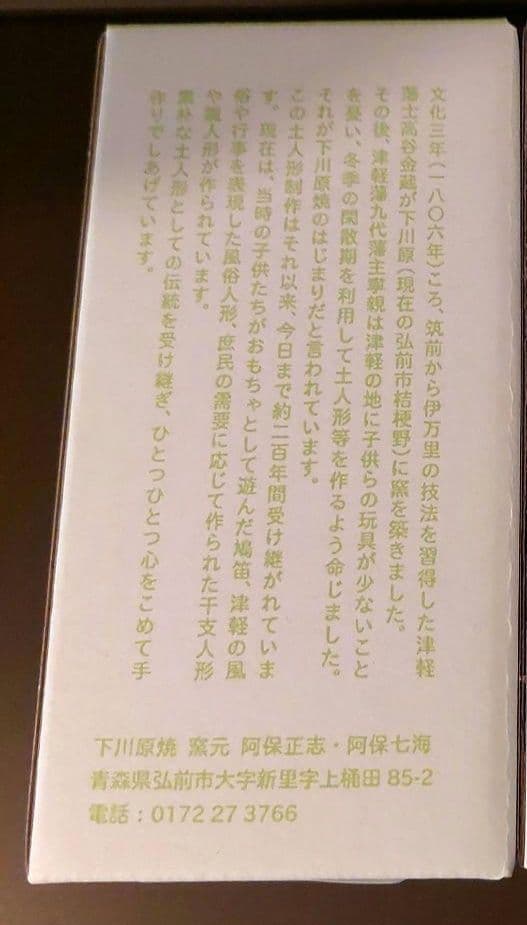 文化三年(一八〇六年)ころ、筑前から伊万里の技法を習得した津軽
藩士高谷金蔵が下川原(現在の弘前市桔梗野)に窯を築きました。
その後、津軽藩九代藩主寧親は津軽の地に子供らの玩具が少ないこと
を憂い、冬季の閑散期を利用して土人形等を作るよう命じました。
それが下川原焼のはじまりだと言われています。
この土人形制作はそれ以来、今日まで約二百年間受け継がれていま
す。現在は、当時の子供たちがおもちゃとして遊んだ鳩笛、津軽の風
俗や行事を表現した風俗人形、庶民の需要に応じて作られた干支人形
や雛人形が作られています。
素朴な土人形としての伝統を受け継ぎ、ひとつひとつ心をこめて手
作りでしあげています。
下川原焼 窯元 阿保正志・阿保七海
青森県弘前市大字新里字上樋田 85-2
電話：0172 27 3766